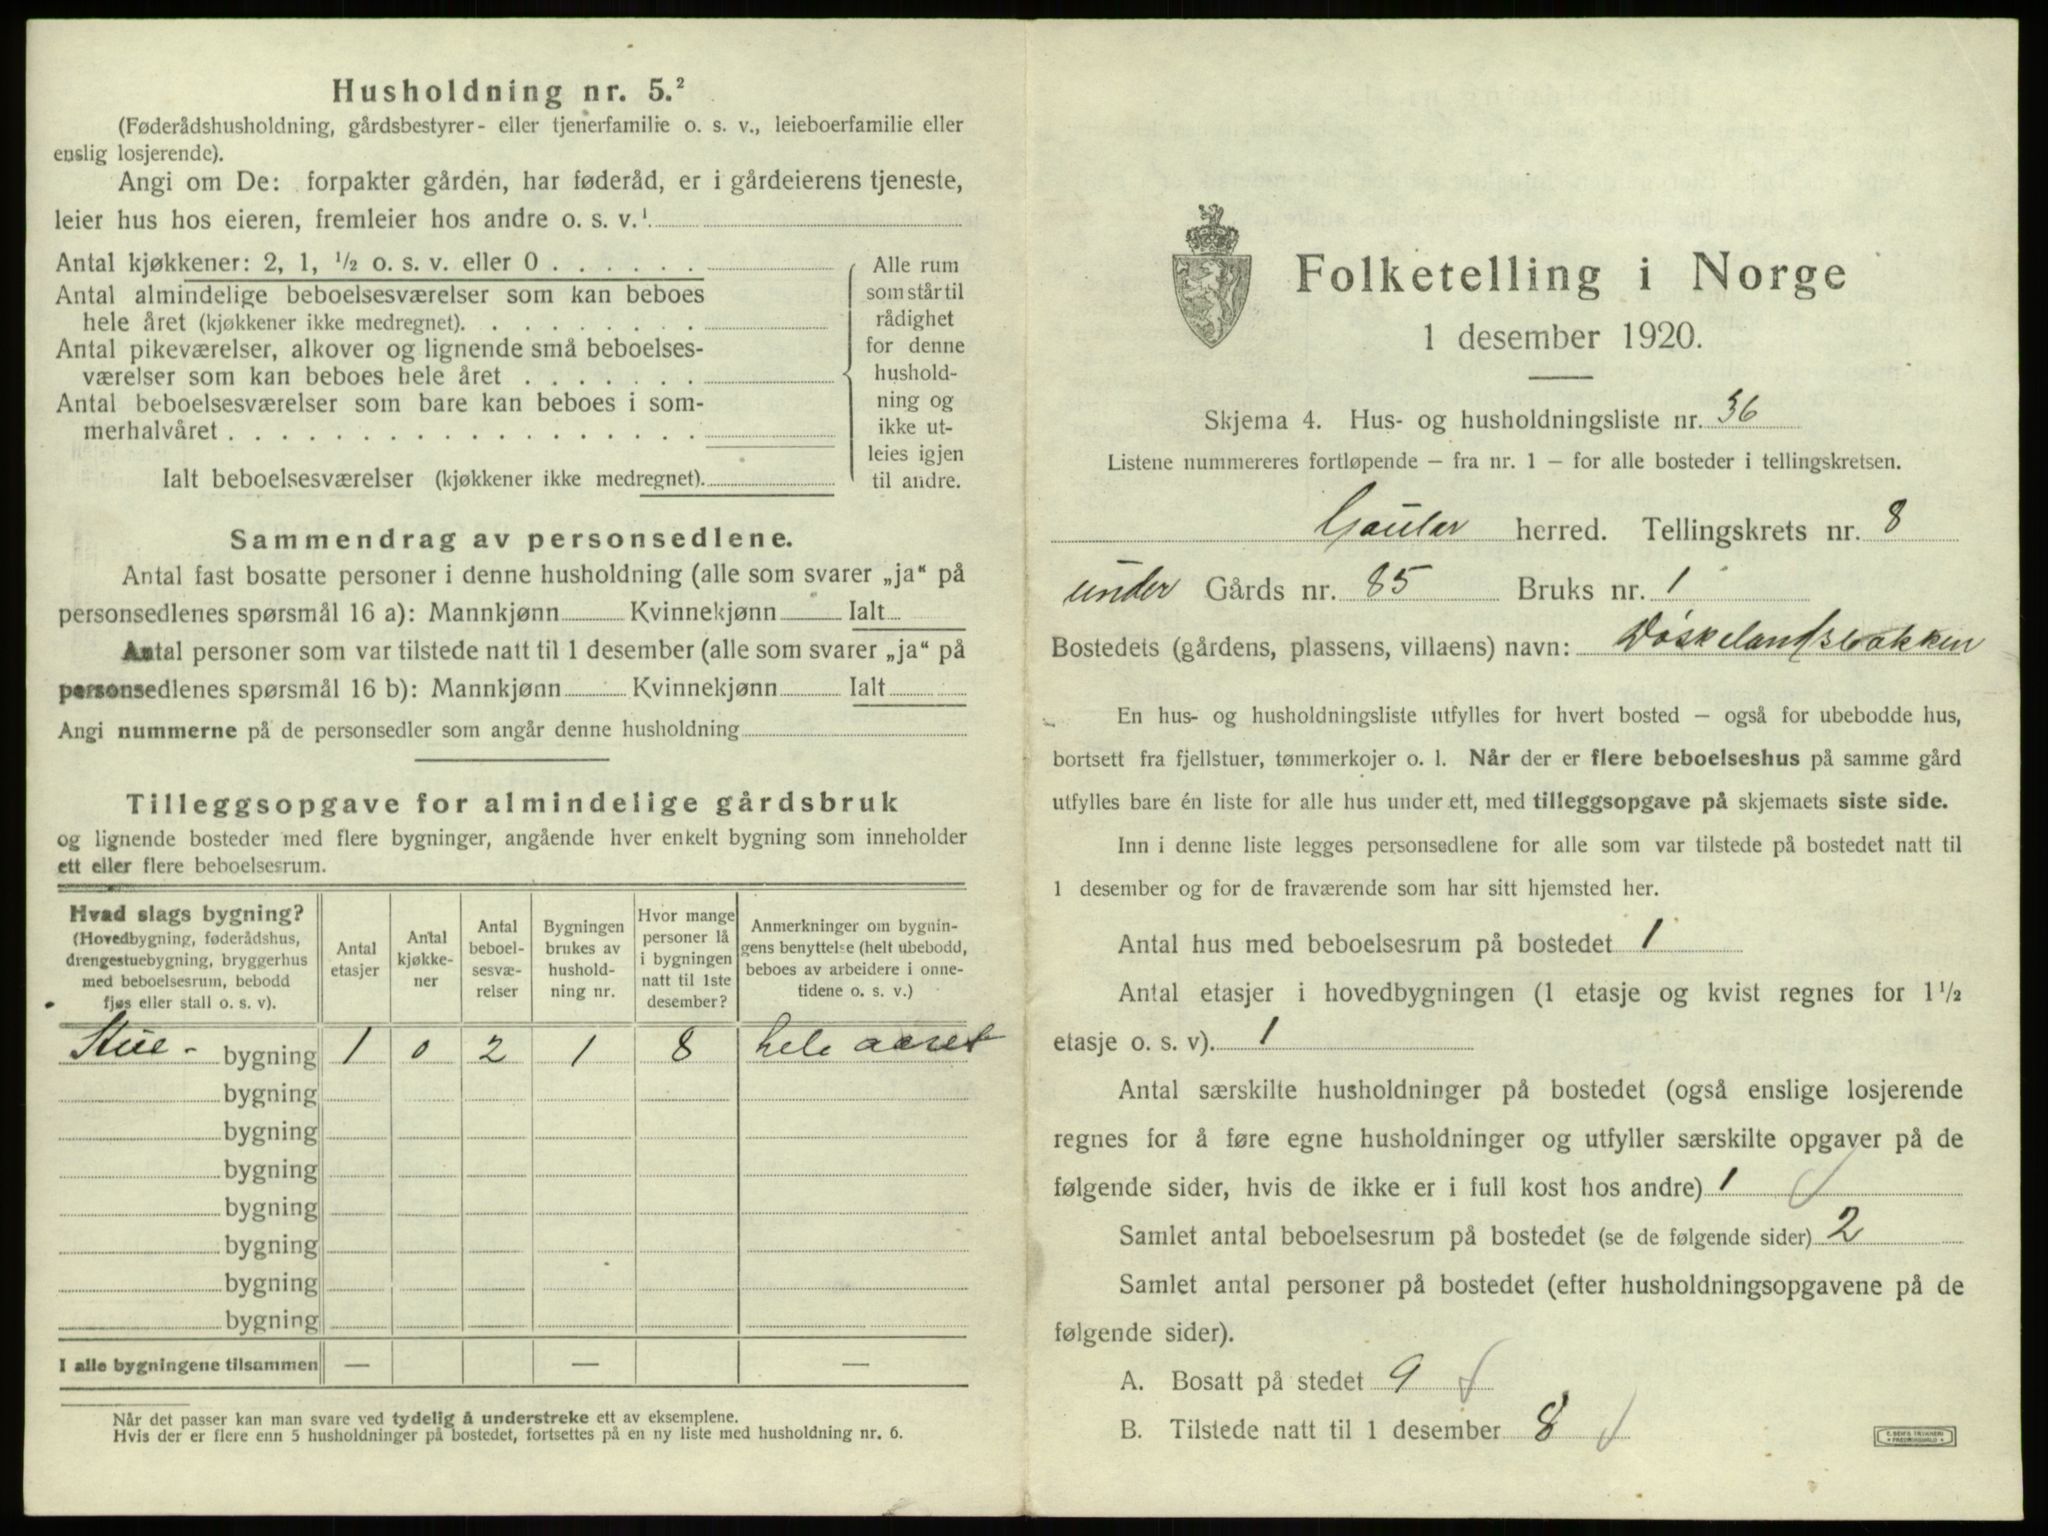 Husholdning nr. 5.²
(Føderådshusholdning, gårdsbestyrer- eller tjenerfamilie o. s. v., leieboerfamilie eller
enslig losjerende).
Angi om De: forpakter gården, har føderåd, er i gårdeierens tjeneste,
leier hus hos eieren, fremleier hos andre o. s. v.¹
Antal kjøkkener: 2, 1, ½ o. s. v. eller 0 . . . . . .
Antal almindelige beboelsesværelser som kan beboes
hele året (kjøkkener ikke medregnet). . . . . . . . .
Antal pikeværelser, alkover og lignende små beboelses-
værelser som kan beboes hele året . . . . . . .
Antal beboelsesværelser som bare kan beboes i som-
merhalvåret . . . . . . . . . . . . . . . . . .
Ialt beboelsesværelser (kjøkkener ikke medregnet).
Alle rum
som står til
rådighet
for denne
hushold-
ning og
ikke ut-
leies igjen
til andre.
Sammendrag av personsedlene.
Antal fast bosatte personer i denne husholdning (alle som svarer „ja“ på
personsedlenes spørsmål 16 a): Mannkjønn Kvinnekjønn Ialt
Antal personer som var tilstede natt til 1 desember (alle som svarer „ja“ på
personsedlenes spørsmål 16 b): Mannkjønn Kvinnekjønn Ialt
Angi nummerne på de personsedler som angår denne husholdning
Tilleggsopgave for almindelige gårdsbruk
og lignende bosteder med flere bygninger, angående hver enkelt bygning som inneholder
ett eller flere beboelsesrum.
Hvad slags bygning?
(Hovedbygning, føderådshus,
drengestuebygning, bryggerhus
med beboelsesrum, bebodd
fjøs eller stall o. s. v).
Antal
etasjer
Antal
kjøkke-
ner
Antal
beboel-
sesvæ-
relser
Bygningen
brukes av
hushold-
ning nr.
Hvor mange
personer lå
i bygningen
natt til 1ste
desember?
Anmerkninger om bygnin-
gens benyttelse (helt ubebodd,
beboes av arbeidere i onne-
tidene o. s. v.)
Stue- bygning 1 0 2 1 8 hele aaret
bygning
bygning
bygning
bygning
bygning
bygning
bygning
I alle bygningene tilsammen — — —
Når det passer kan man svare ved tydelig å understreke ett av eksemplene.
Hvis der er flere enn 5 husholdninger på bostedet, fortsettes på en ny liste med husholdning nr. 6.
Folketelling i Norge
1 desember 1920.
Skjema 4. Hus- og husholdningsliste nr. 36
Listene nummereres fortløpende — fra nr. 1 — for alle bosteder i tellingskretsen.
Gaular herred. Tellingskrets nr. 8
under Gårds nr. 85 Bruks nr. 1
Bostedets (gårdens, plassens, villaens) navn: Døskelandsbakken
En hus- og husholdningsliste utfylles for hvert bosted — også for ubebodde hus,
bortsett fra fjellstuer, tømmerkojer o. l. Når der er flere beboelseshus på samme gård
utfylles bare én liste for alle hus under ett, med tilleggsopgave på skjemaets siste side.
Inn i denne liste legges personsedlene for alle som var tilstede på bostedet natt til
1 desember og for de fraværende som har sitt hjemsted her.
Antal hus med beboelsesrum på bostedet 1
Antal etasjer i hovedbygningen (1 etasje og kvist regnes for 1½
etasje o. s. v). 1
Antal særskilte husholdninger på bostedet (også enslige losjerende
regnes for å føre egne husholdninger og utfyller særskilte opgaver på de
følgende sider, hvis de ikke er i full kost hos andre) 1
Samlet antal beboelsesrum på bostedet (se de følgende sider) 2
Samlet antal personer på bostedet (efter husholdningsopgavene på de
følgende sider).
A. Bosatt på stedet 9
B. Tilstede natt til 1 desember 8